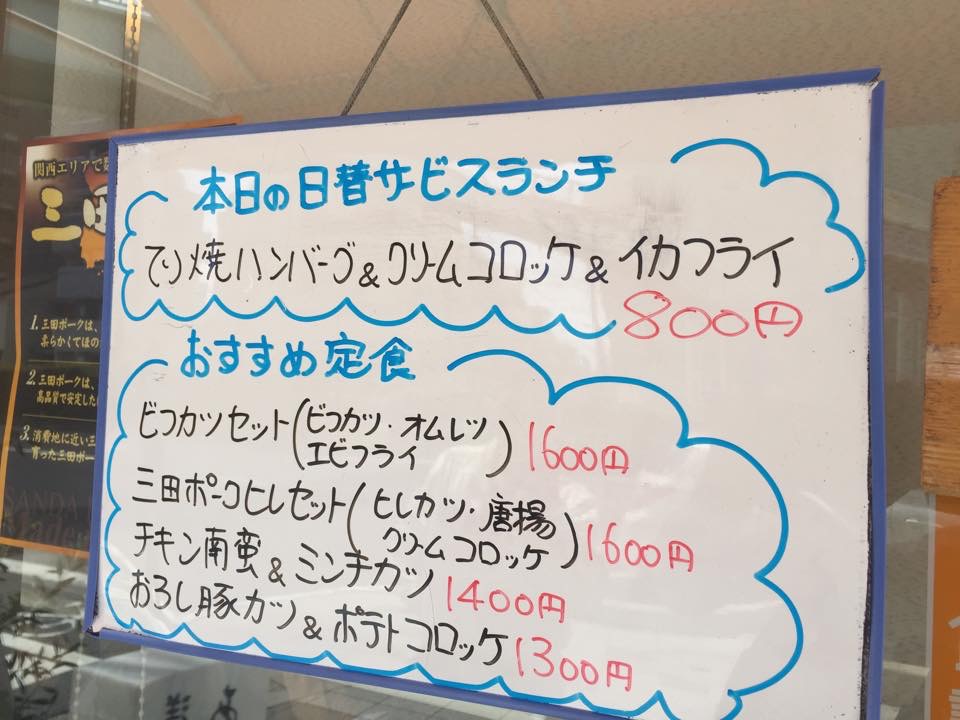 本日の日替サービスランチ
てり焼ハンバーグ&クリームコロッケ&イカフライ
800円
おすすめ定食
ビフカツセット(ビフカツ・オムレツ
エビフライ) 1600円
三田ポークヒレセット(ヒレカツ・唐揚
クリームコロッケ) 1600円
チキン南蛮&ミンチカツ 1400円
おろし豚カツ&ポテトコロッケ 1300円
関西エリアで
三田
1. 三田ポークは、
柔らかくてほの
2. 三田ポークは、
高品質で安定した
3. 消費地に近い三
育った三田ポー
SANDA